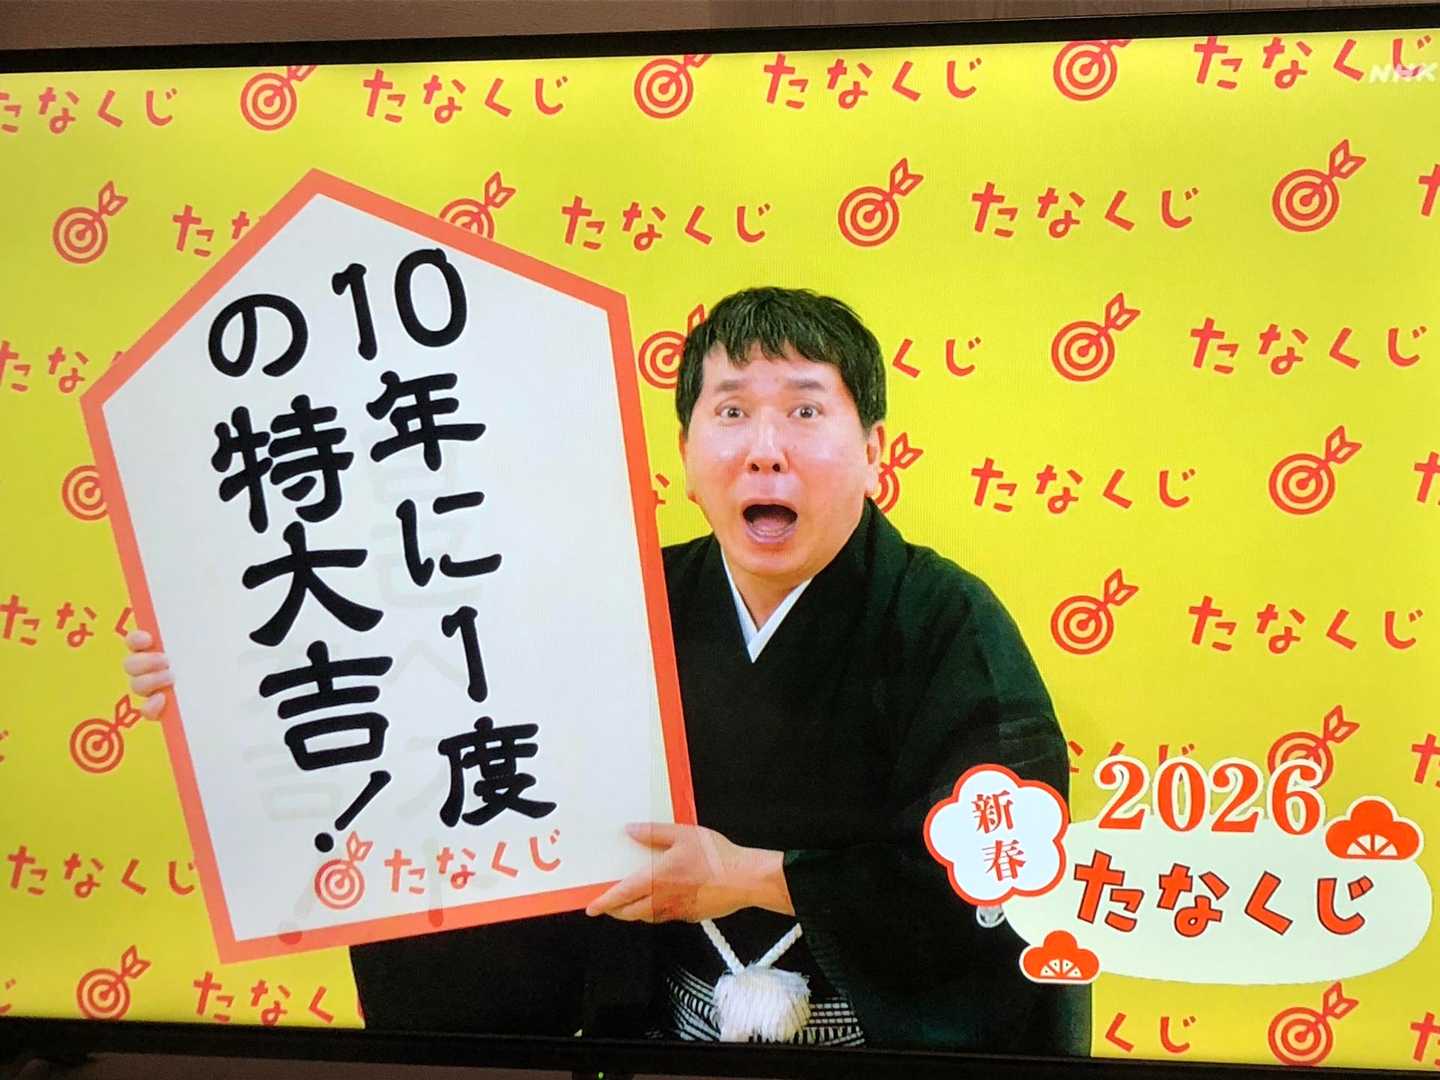 たなくじ
たなくじ
たなくじ
たなく
NHK
たな
たなくじ
たなくじ
た
たな
くじ
たなくじ
たなくじ
た
たなく
たなくじ
10年に1度
の特大吉!
たなくじ
たなくじ
新春
2026
たなくじ
たなく
くじ
た